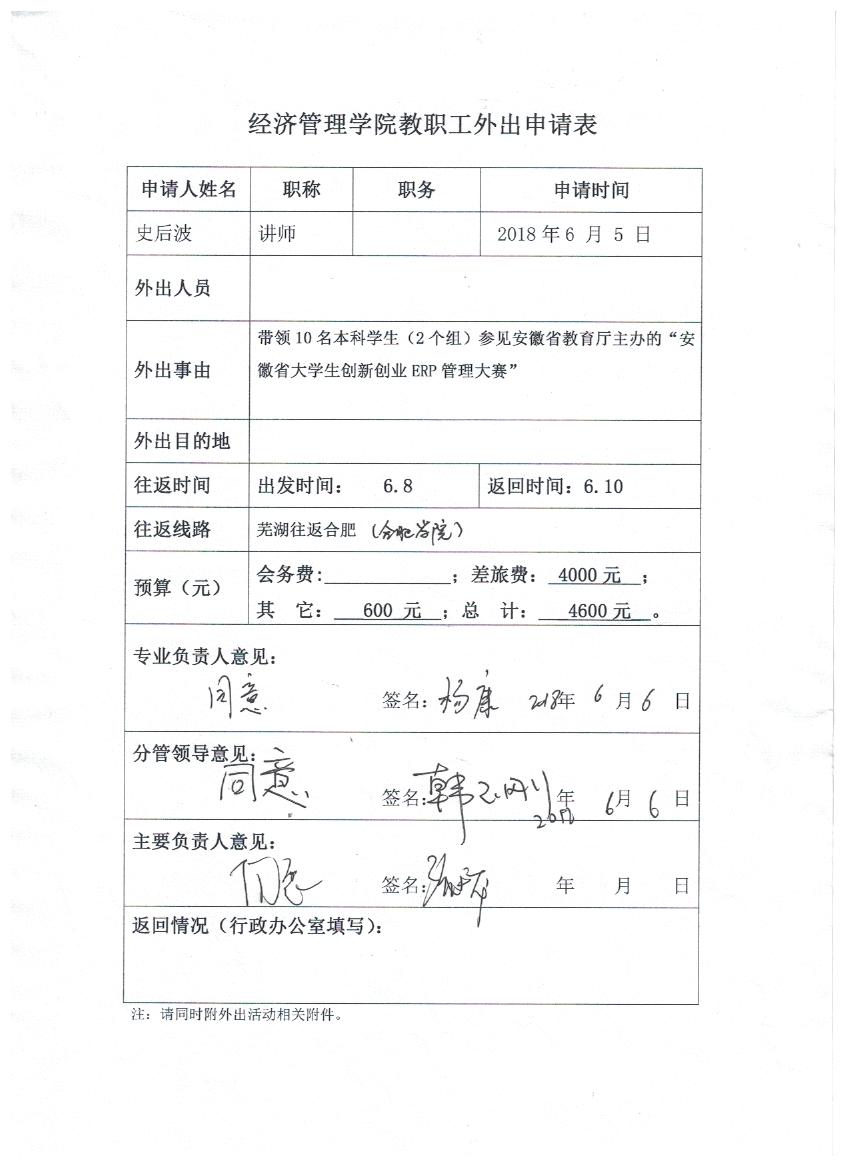 经济管理学院教职工外出申请表
申请人姓名 职称 职务 申请时间
史后波 讲师 2018 年 6 月 5 日
外出人员
外出事由 带领 10 名本科学生（2 个组）参见安徽省教育厅主办的“安
徽省大学生创新创业 ERP 管理大赛”
外出目的地
往返时间 出发时间： 6.8 返回时间：6.10
往返线路 芜湖往返合肥 （合肥学院）
预算（元） 会务费: ；差旅费： 4000 元 ；
其 它： 600 元 ；总 计： 4600 元 。
专业负责人意见：
同意 签名：杨康 2018年 6 月 6 日
分管领导意见：
同意 签名：韩 年 6月 6 日
主要负责人意见：
同意 签名： 年 月 日
返回情况（行政办公室填写）：
注：请同时附外出活动相关附件。